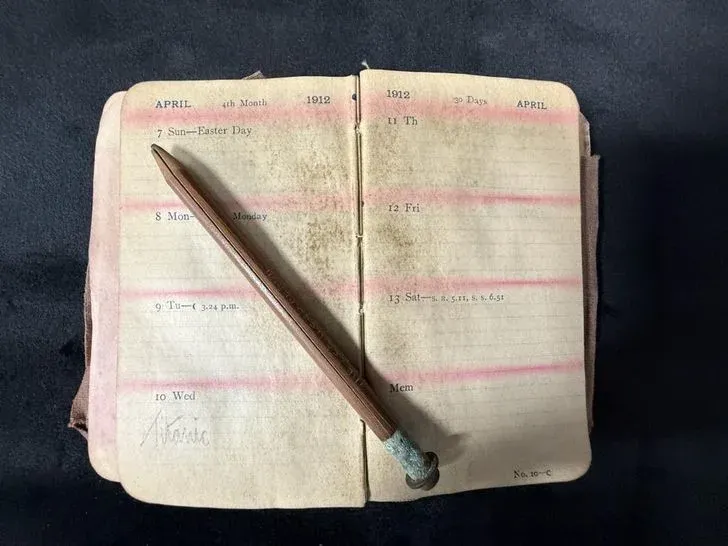 APRIL 4th Month 1912
7 Sun—Easter Day
8 Mon— Monday
9 Tu—☾ 3.24 p.m.
10 Wed
Titanic
1912 30 Days APRIL
11 Th
12 Fri
13 Sat—s. r. 5.11, s. s. 6.51
Mem
No. 10—C